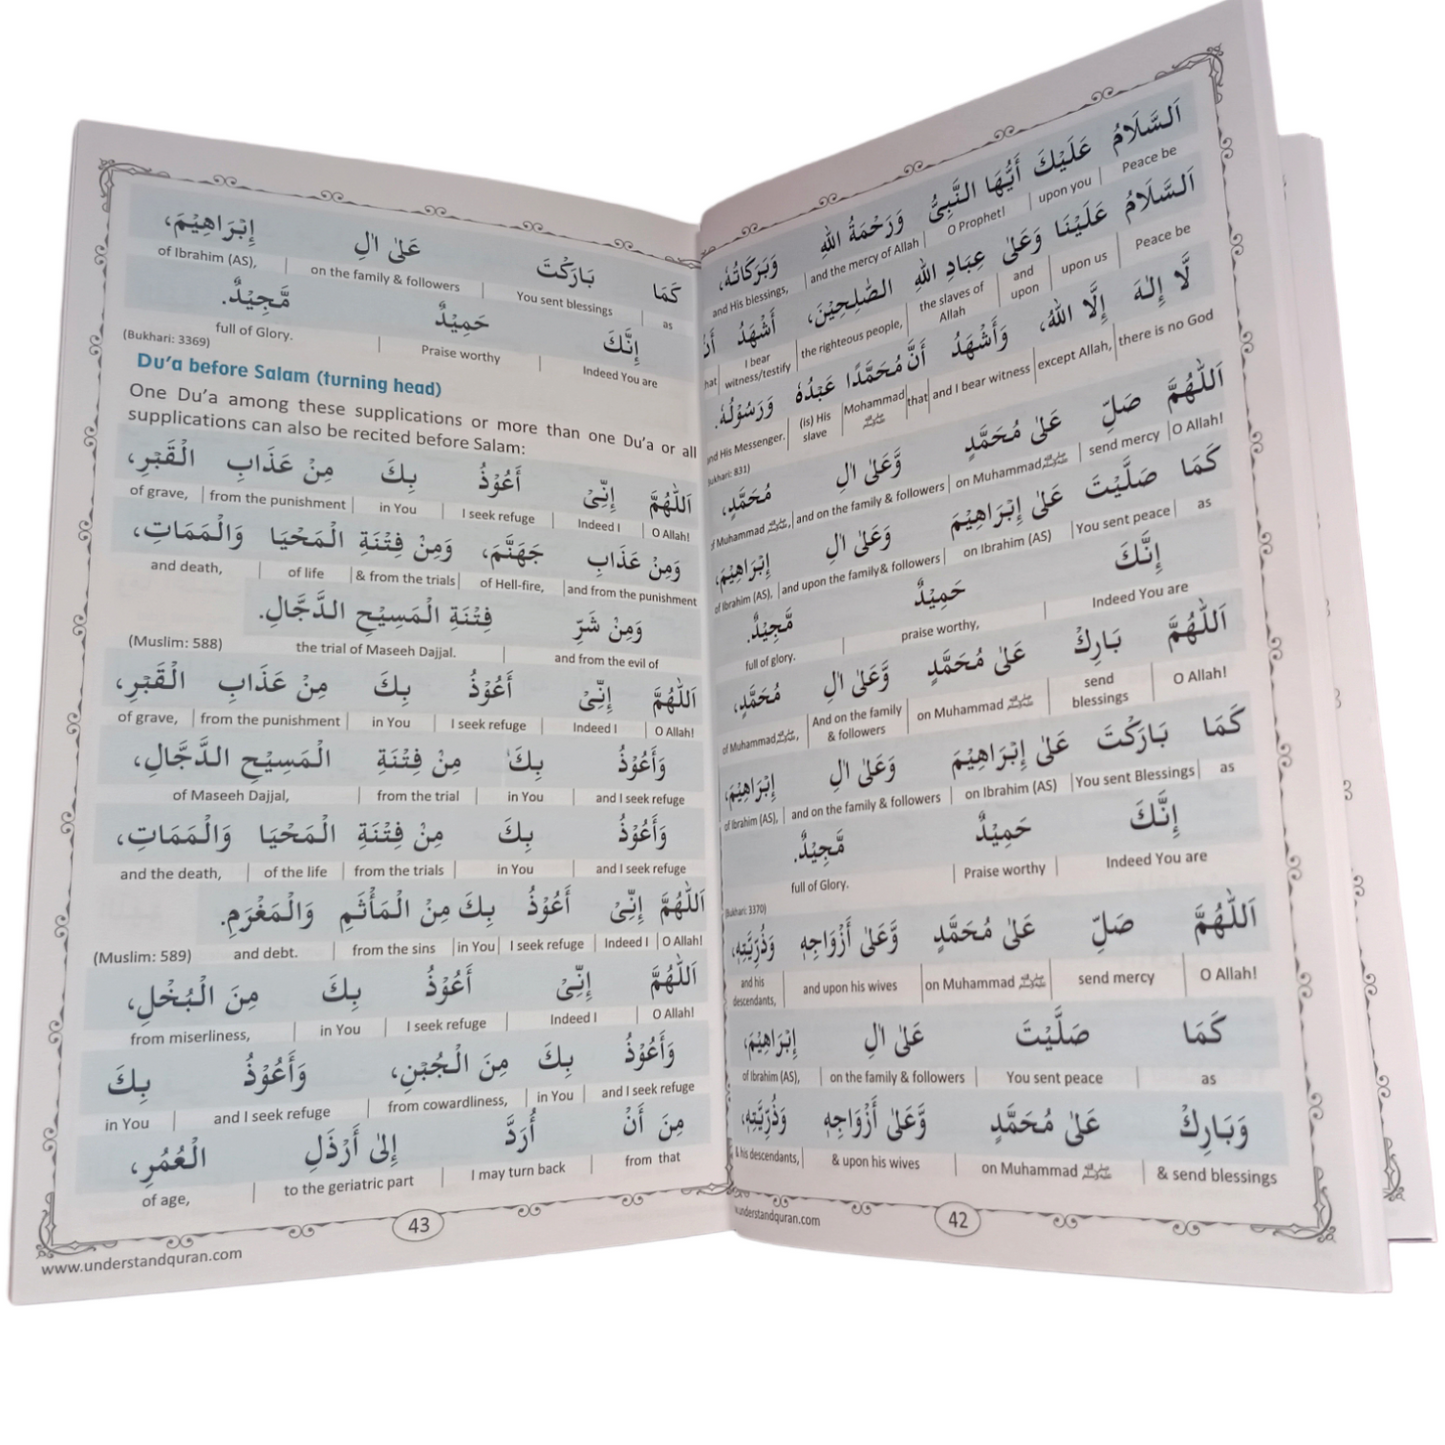 اَلسَّلَامُ عَلَيْكَ أَيُّهَا النَّبِيُّ وَرَحْمَةُ اللهِ وَبَرَكَاتُهٗ،
Peace be | upon you | O Prophet! | and the mercy of Allah | and His blessings,
اَلسَّلَامُ عَلَيْنَا وَعَلٰى عِبَادِ اللهِ الصّٰلِحِيْنَ، أَشْهَدُ أَنْ
Peace be | upon us | and upon | the slaves of Allah | the righteous people, | I bear witness/testify | hat
لَّا إِلٰهَ إِلَّا اللهُ، وَأَشْهَدُ أَنَّ مُحَمَّدًا عَبْدُهٗ وَرَسُوْلُهٗ.
there is no God | except Allah, | and I bear witness | that | Mohammad ﷺ | (is) His slave | nd His Messenger.
ukhari: 831)
اَللّٰهُمَّ صَلِّ عَلٰى مُحَمَّدٍ وَّعَلٰى اٰلِ مُحَمَّدٍ،
O Allah! | send mercy | on Muhammad ﷺ | and on the family & followers | f Muhammad ﷺ,
كَمَا صَلَّيْتَ عَلٰى إِبْرَاهِيْمَ وَعَلٰى اٰلِ إِبْرَاهِيْمَ،
as | You sent peace | on Ibrahim (AS) | and upon the family& followers | of Ibrahim (AS),
إِنَّكَ حَمِيْدٌ مَّجِيْدٌ.
Indeed You are | praise worthy, | full of glory.
اَللّٰهُمَّ بَارِكْ عَلٰى مُحَمَّدٍ وَّعَلٰى اٰلِ مُحَمَّدٍ،
O Allah! | send blessings | on Muhammad ﷺ | And on the family & followers | of Muhammad ﷺ,
كَمَا بَارَكْتَ عَلٰى إِبْرَاهِيْمَ وَعَلٰى اٰلِ إِبْرَاهِيْمَ،
as | You sent Blessings | on Ibrahim (AS) | and on the family & followers | of Ibrahim (AS),
إِنَّكَ حَمِيْدٌ مَّجِيْدٌ.
Indeed You are | Praise worthy | full of Glory.
(Bukhari: 3370)
اَللّٰهُمَّ صَلِّ عَلٰى مُحَمَّدٍ وَّعَلٰى أَزْوَاجِهٖ وَذُرِّيَّتِهٖ،
O Allah! | send mercy | on Muhammad ﷺ | and upon his wives | and his descendants,
كَمَا صَلَّيْتَ عَلٰى اٰلِ إِبْرَاهِيْمَ،
as | You sent peace | on the family & followers | of Ibrahim (AS),
وَبَارِكْ عَلٰى مُحَمَّدٍ وَّعَلٰى أَزْوَاجِهٖ وَذُرِّيَّتِهٖ،
& send blessings | on Muhammad ﷺ | & upon his wives | & his descendants,
42
understandquran.com
كَمَا بَارَكْتَ عَلٰى اٰلِ إِبْرَاهِيْمَ،
as | You sent blessings | on the family & followers | of Ibrahim (AS),
إِنَّكَ حَمِيْدٌ مَّجِيْدٌ.
Indeed You are | Praise worthy | full of Glory.
(Bukhari: 3369)
Du'a before Salam (turning head)
One Du'a among these supplications or more than one Du'a or all
supplications can also be recited before Salam:
اَللّٰهُمَّ إِنِّيْ أَعُوْذُ بِكَ مِنْ عَذَابِ الْقَبْرِ،
O Allah! | Indeed I | I seek refuge | in You | from the punishment | of grave,
وَمِنْ عَذَابِ جَهَنَّمَ، وَمِنْ فِتْنَةِ الْمَحْيَا وَالْمَمَاتِ،
and from the punishment | of Hell-fire, | & from the trials | of life | and death,
وَمِنْ شَرِّ فِتْنَةِ الْمَسِيْحِ الدَّجَّالِ.
and from the evil of | the trial of Maseeh Dajjal. (Muslim: 588)
اَللّٰهُمَّ إِنِّيْ أَعُوْذُ بِكَ مِنْ عَذَابِ الْقَبْرِ،
O Allah! | Indeed I | I seek refuge | in You | from the punishment | of grave,
وَأَعُوْذُ بِكَ مِنْ فِتْنَةِ الْمَسِيْحِ الدَّجَّالِ،
and I seek refuge | in You | from the trial | of Maseeh Dajjal,
وَأَعُوْذُ بِكَ مِنْ فِتْنَةِ الْمَحْيَا وَالْمَمَاتِ،
and I seek refuge | in You | from the trials | of the life | and the death,
اَللّٰهُمَّ إِنِّيْ أَعُوْذُ بِكَ مِنْ الْمَأْثَمِ وَالْمَغْرَمِ.
O Allah! | Indeed I | I seek refuge | in You | from the sins | and debt. (Muslim: 589)
اَللّٰهُمَّ إِنِّيْ أَعُوْذُ بِكَ مِنَ الْبُخْلِ،
O Allah! | Indeed I | I seek refuge | in You | from miserliness,
وَأَعُوْذُ بِكَ مِنَ الْجُبْنِ، وَأَعُوْذُ بِكَ
and I seek refuge | in You | from cowardliness, | and I seek refuge | in You
مِنَ أَنْ أُرَدَّ إِلٰى أَرْذَلِ الْعُمُرِ،
from that | I may turn back | to the geriatric part | of age,
43
www.understandquran.com